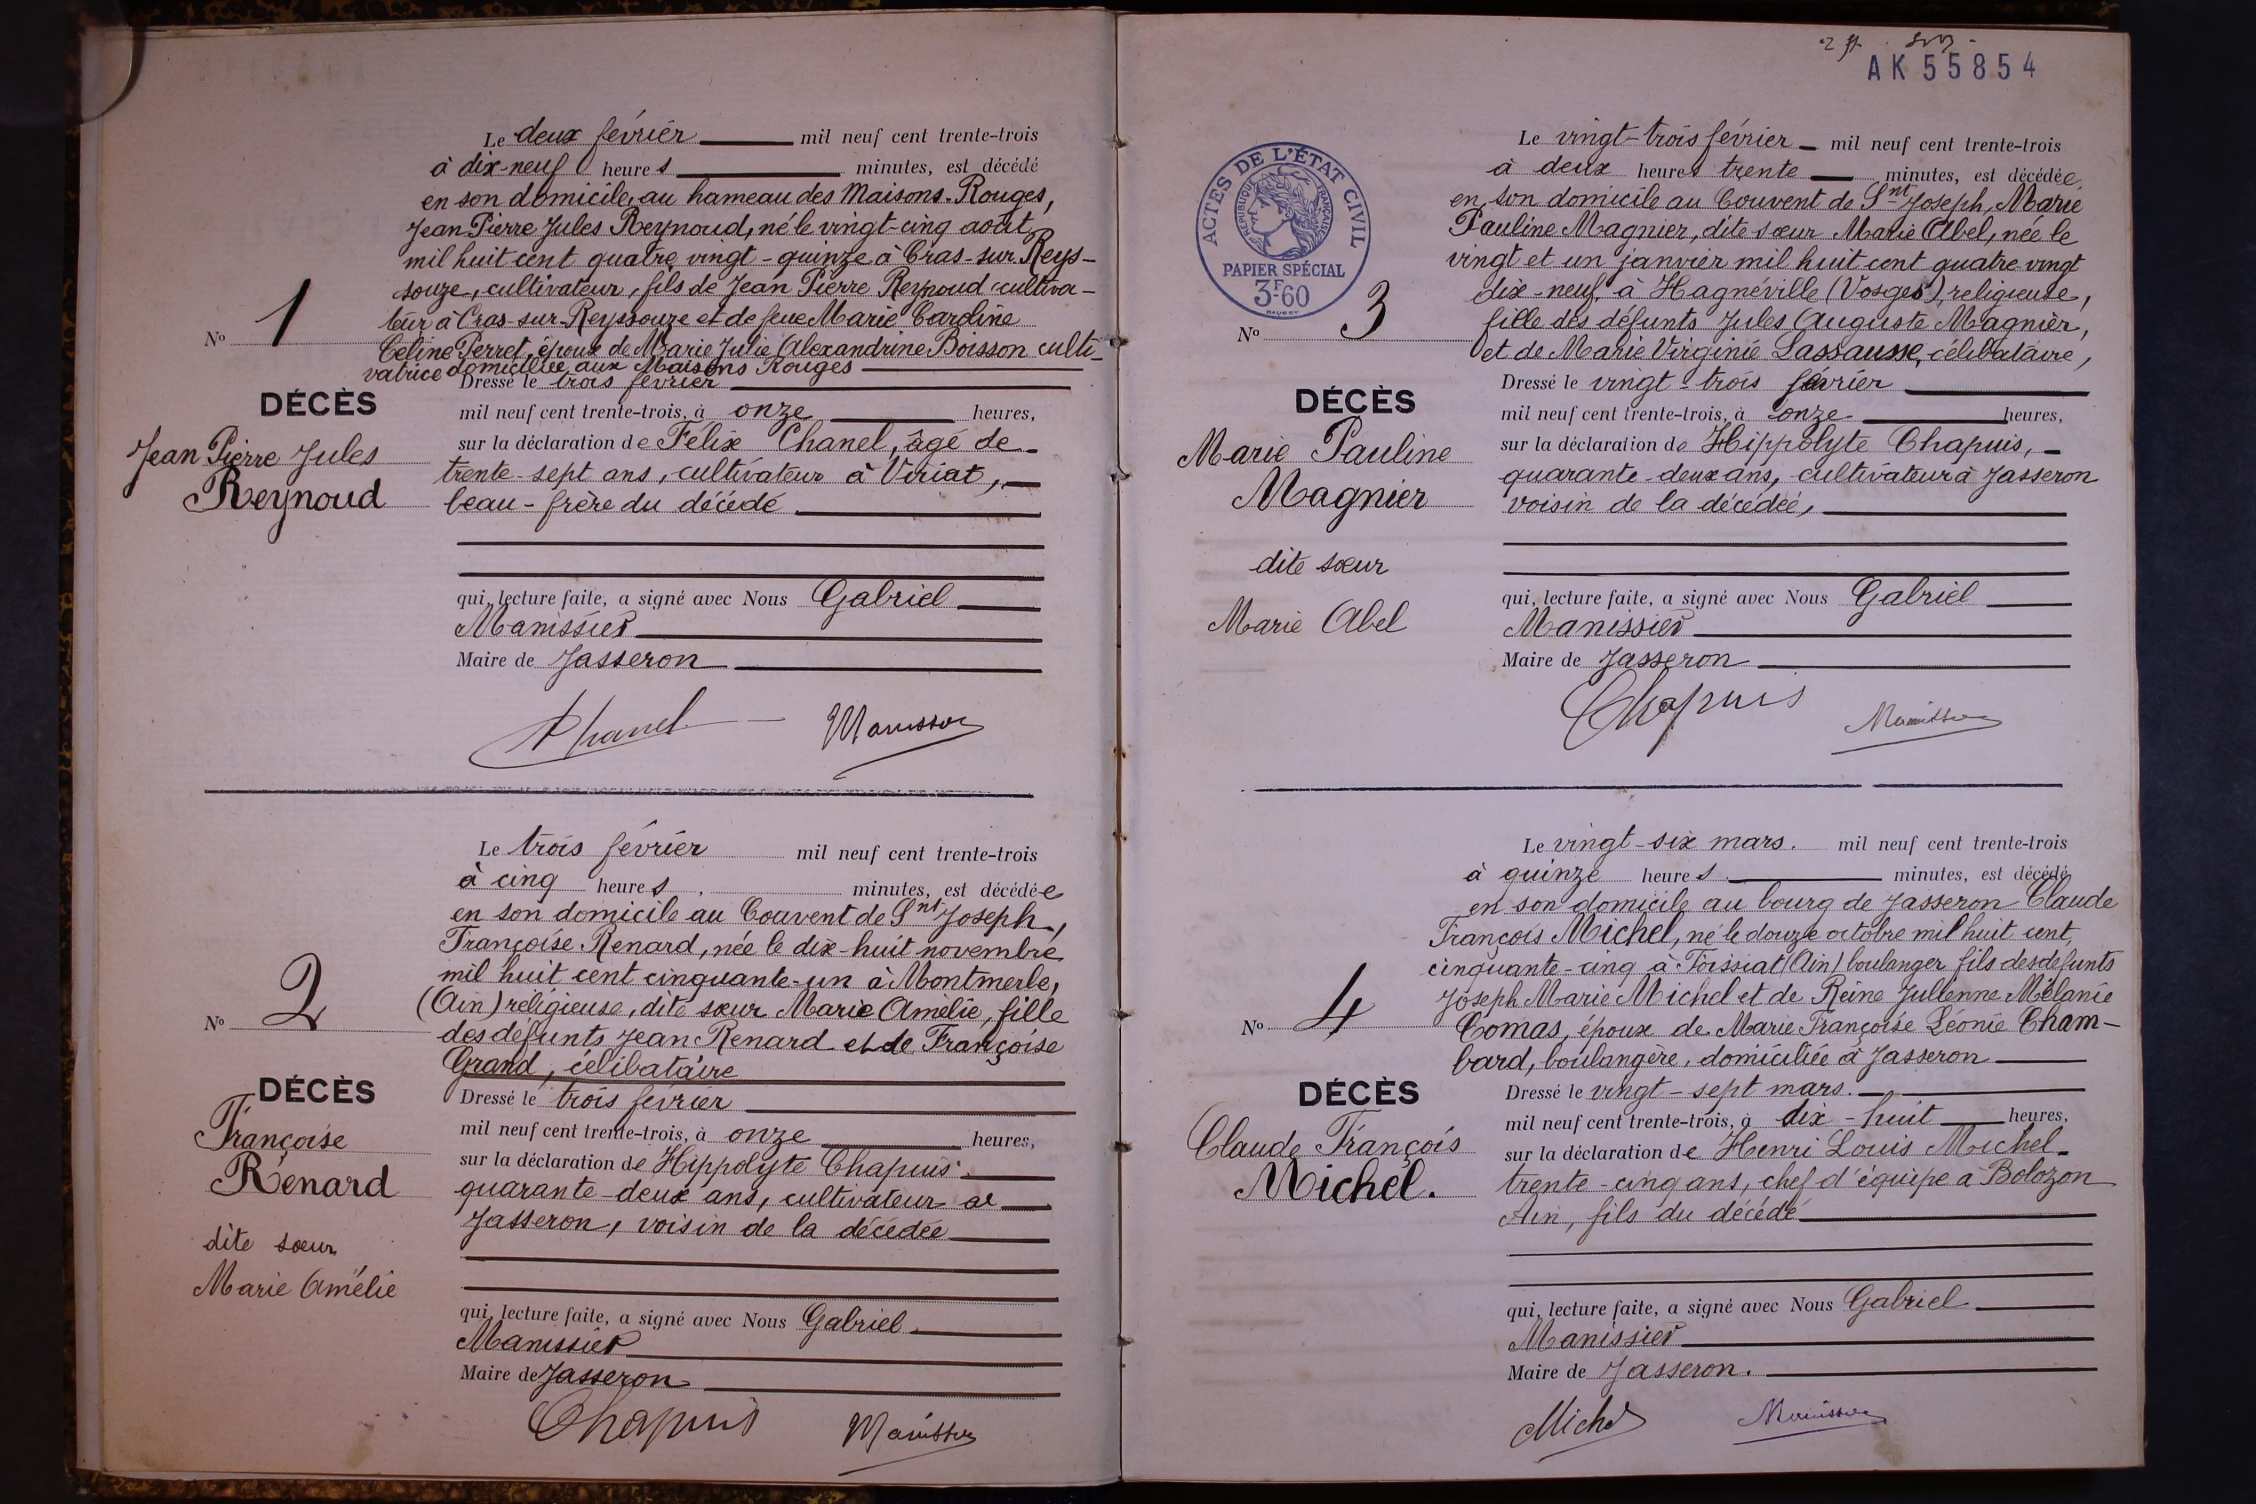 Le deux février mil neuf cent trente-trois
à dix-neuf heures minutes, est décédé
en son domicile, au hameau des Maisons-Rouges,
Jean Pierre Jules Reynoud, né le vingt-cinq août
mil huit cent quatre vingt-quinze à Cras-sur-Reys-
souze, cultivateur, fils de Jean Pierre Reynoud cultiva-
teur à Cras-sur-Reyssouze et de feue Marie Caroline
Céline Perret, époux de Marie Julie Alexandrine Boisson culti-
vatrice domiciliée aux Maisons Rouges
No 1
DÉCÈS
Jean Pierre Jules
Reynoud
Dressé le trois février
mil neuf cent trente-trois, à onze heures,
sur la déclaration de Félix Chanel, âgé de
trente-sept ans, cultivateur à Viriat,
beau-frère du décédé
qui, lecture faite, a signé avec Nous Gabriel
Manissier
Maire de Jasseron
Chanel Manissier
Le trois février mil neuf cent trente-trois
à cinq heures minutes, est décédée
en son domicile au Couvent de Snt Joseph,
Françoise Renard, née le dix-huit novembre
mil huit cent cinquante-un à Montmerle,
(Ain) religieuse, dite sœur Marie Amélie, fille
des défunts Jean Renard et de Françoise
Grand, célibataire
No 2
DÉCÈS
Françoise
Renard
dite sœur
Marie Amélie
Dressé le trois février
mil neuf cent trente-trois, à onze heures,
sur la déclaration de Hippolyte Chapuis
quarante-deux ans, cultivateur à
Jasseron, voisin de la décédée
qui, lecture faite, a signé avec Nous Gabriel
Manissier
Maire de Jasseron
Chapuis Manissier
AK 55854
ACTES DE L'ÉTAT CIVIL
RÉPUBLIQUE FRANÇAISE
PAPIER SPÉCIAL
3F60
Le vingt-trois février mil neuf cent trente-trois
à deux heures trente minutes, est décédée
en son domicile au Couvent de Snt Joseph, Marie
Pauline Magnier, dite sœur Marie Abel, née le
vingt et un janvier mil huit cent quatre vingt
dix-neuf à Hagnéville (Vosges), religieuse,
fille des défunts Jules Auguste Magnier,
et de Marie Virginie Lassausse, célibataire,
No 3
DÉCÈS
Marie Pauline
Magnier
dite sœur
Marie Abel
Dressé le vingt-trois février
mil neuf cent trente-trois, à onze heures,
sur la déclaration de Hippolyte Chapuis,
quarante-deux ans, cultivateur à Jasseron
voisin de la décédée,
qui, lecture faite, a signé avec Nous Gabriel
Manissier
Maire de Jasseron
Chapuis Manissier
Le vingt-six mars. mil neuf cent trente-trois
à quinze heures minutes, est décédé
en son domicile au bourg de Jasseron Claude
François Michel, né le douze octobre mil huit cent,
cinquante-cinq à Foissiat (Ain) boulanger fils des défunts
Joseph Marie Michel et de Reine Julienne Mélanie
Comas, époux de Marie Françoise Léonie Cham-
bard, boulangère, domiciliée à Jasseron
No 4
DÉCÈS
Claude François
Michel.
Dressé le vingt-sept mars.
mil neuf cent trente-trois, à dix-huit heures,
sur la déclaration de Henri Louis Michel
trente-cinq ans, chef d'équipe à Bolozon
Ain, fils du décédé
qui, lecture faite, a signé avec Nous Gabriel
Manissier
Maire de Jasseron.
Michel Manissier